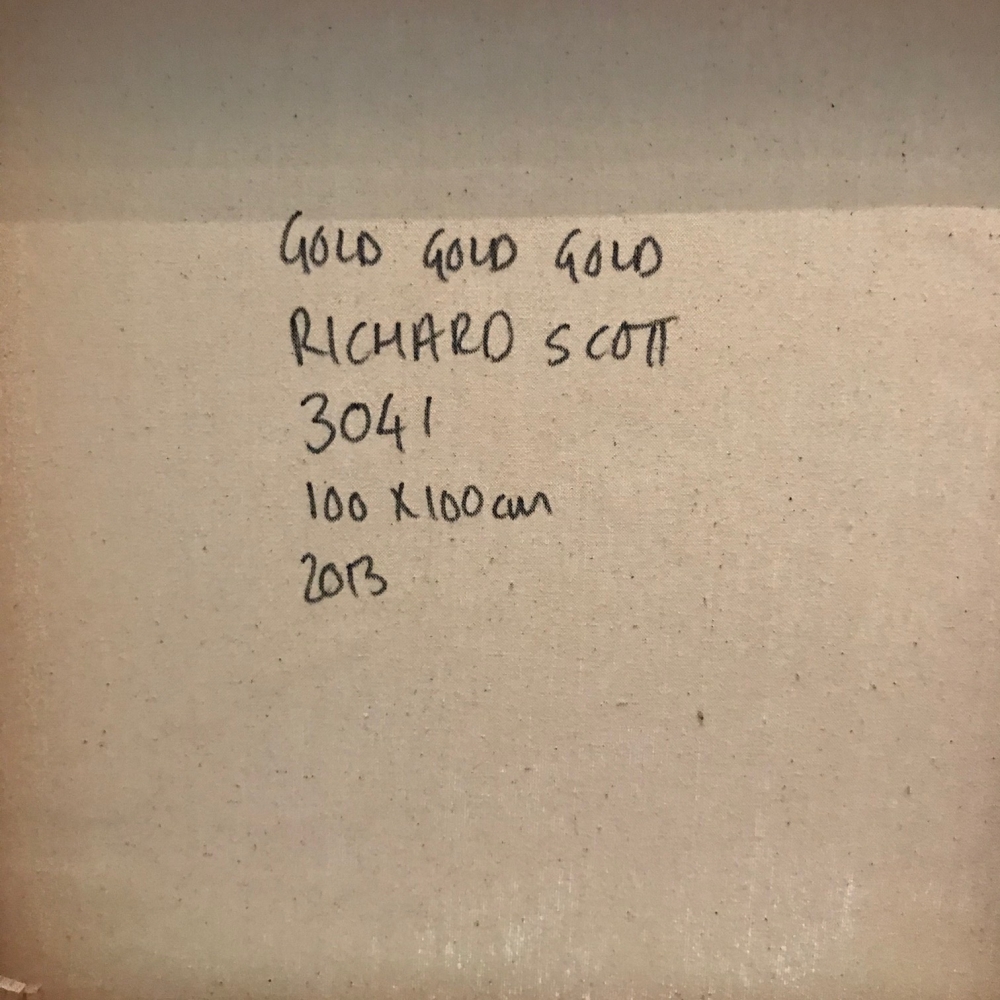 GOLD GOLD GOLD
RICHARD SCOTT
3041
100 X 100 cm
2013